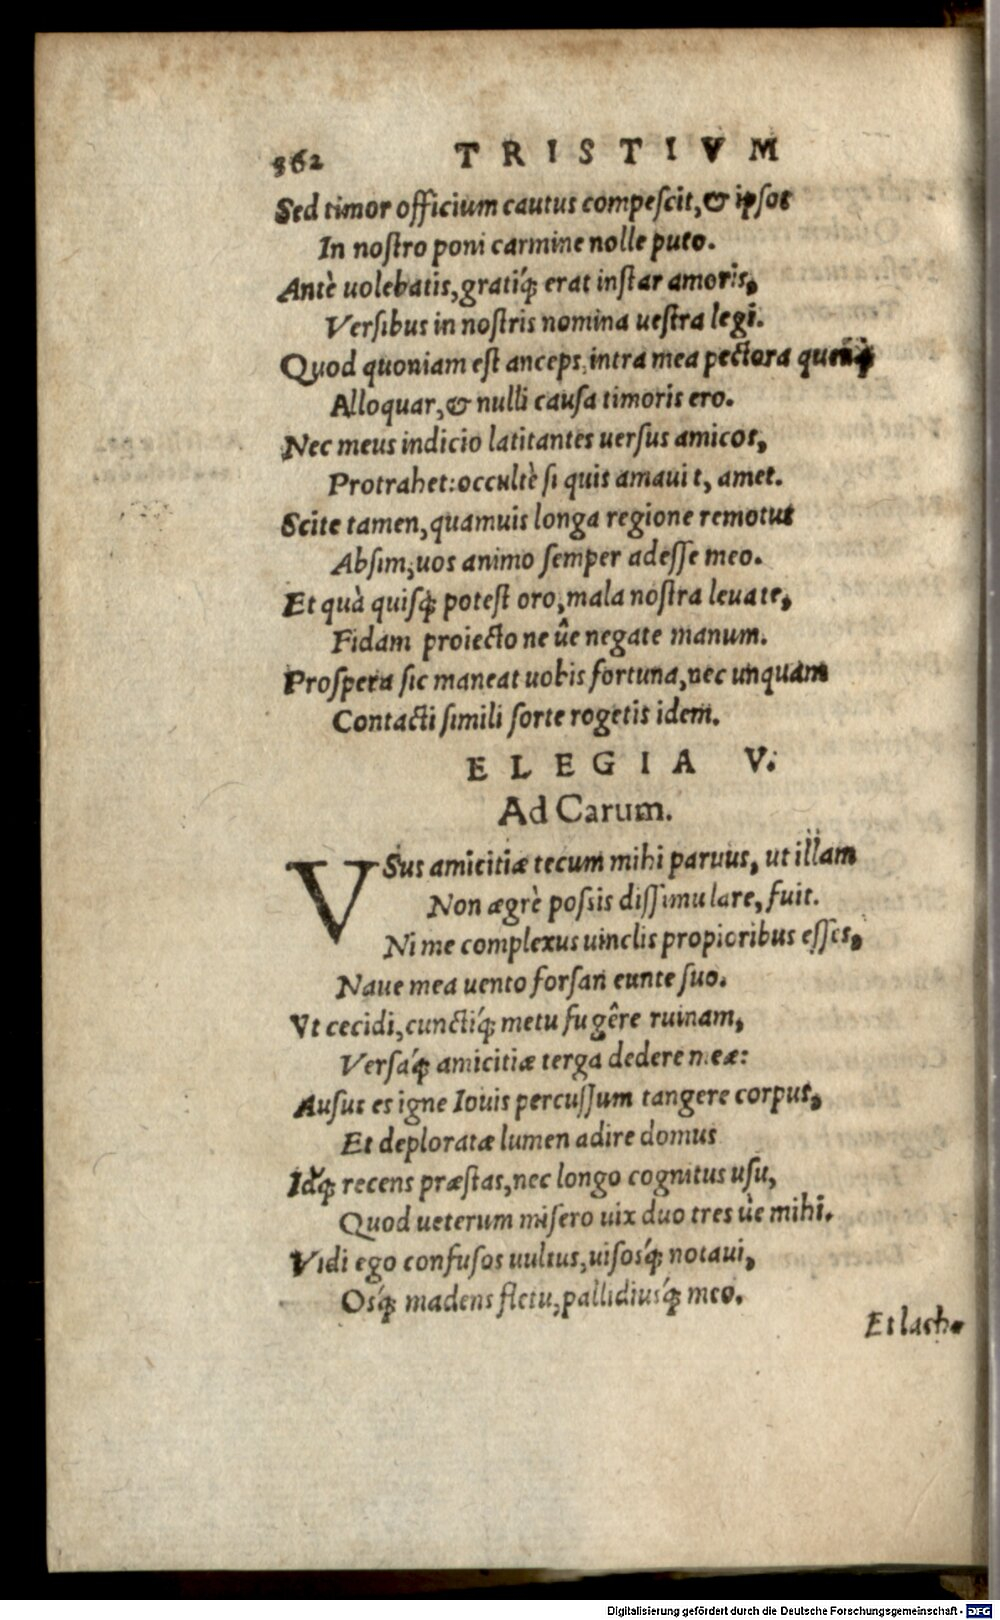 362 TRISTIVM
Sed timor officium cautus compeſcit, & ipſos
In noſtro poni carmine nolle puto.
Antè uolebatis, gratíq́; erat inſtar amoris,
Verſibus in noſtris nomina ueſtra legi.
Quod quoniam eſt anceps, intra mea pectora quenq́;
Alloquar, & nulli cauſa timoris ero.
Nec meus indicio latitantes uerſus amicos,
Protrahet: occultè ſi quis amauit, amet.
Scite tamen, quamuis longa regione remotus
Abſim, uos animo ſemper adeſſe meo.
Et quà quiſq; poteſt oro, mala noſtra leuate,
Fidam proiecto ne ûe negate manum.
Proſpera ſic maneat uobis fortuna, nec unquam
Contacti ſimili ſorte rogetis idem.
ELEGIA V.
Ad Carum.
VSus amicitiæ tecum mihi paruus, ut illam
Non ægrè poſsis diſſimulare, fuit.
Ni me complexus uinclis propioribus eſſes,
Naue mea uento forſan eunte ſuo.
Vt cecidi, cunctíq́; metu fugêre ruinam,
Verſáq́; amicitiæ terga dedere meæ:
Auſus es igne Iouis percuſſum tangere corpus,
Et deploratæ lumen adire domus
Idq́; recens præſtas, nec longo cognitus uſu,
Quod ueterum miſero uix duo tres ûe mihi.
Vidi ego confuſos uultus, uiſosq́; notaui,
Osq́; madens fletu, pallidiusq́; meo.
Et lach.
Digitalisierung gefördert durch die Deutsche Forschungsgemeinschaft - DFG